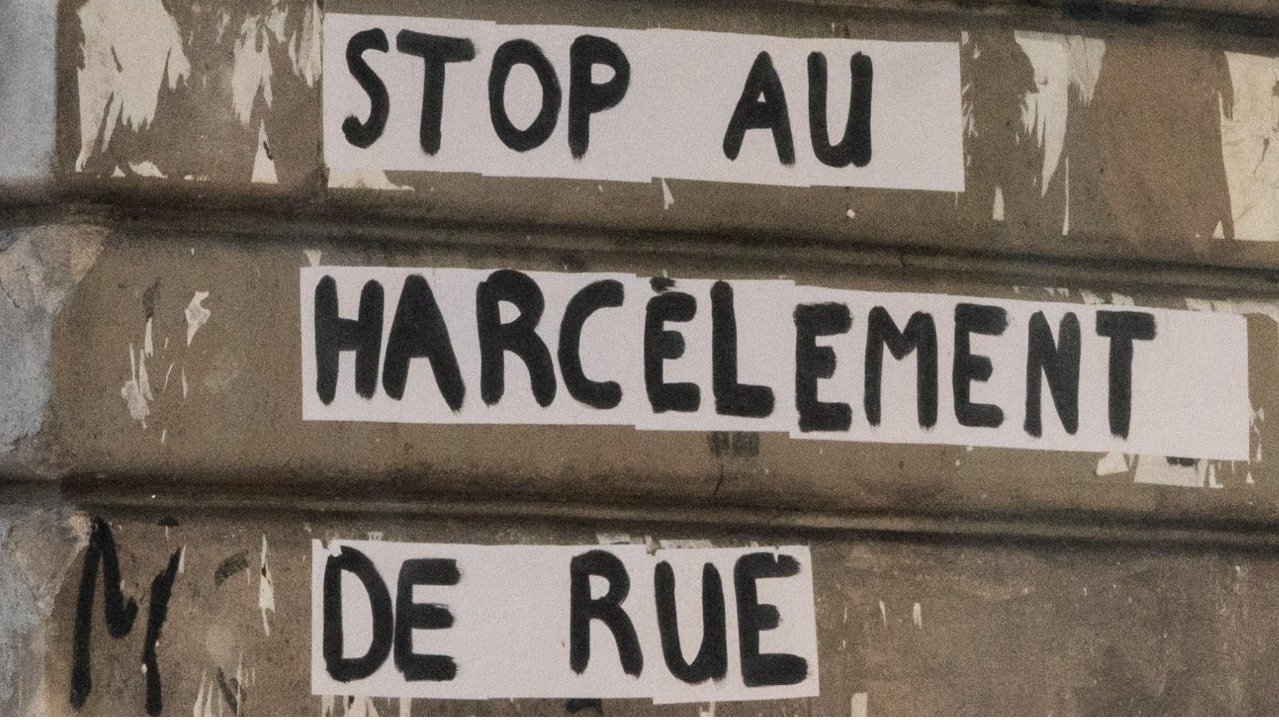 STOP AU
HARCÈLEMENT
DE RUE
M